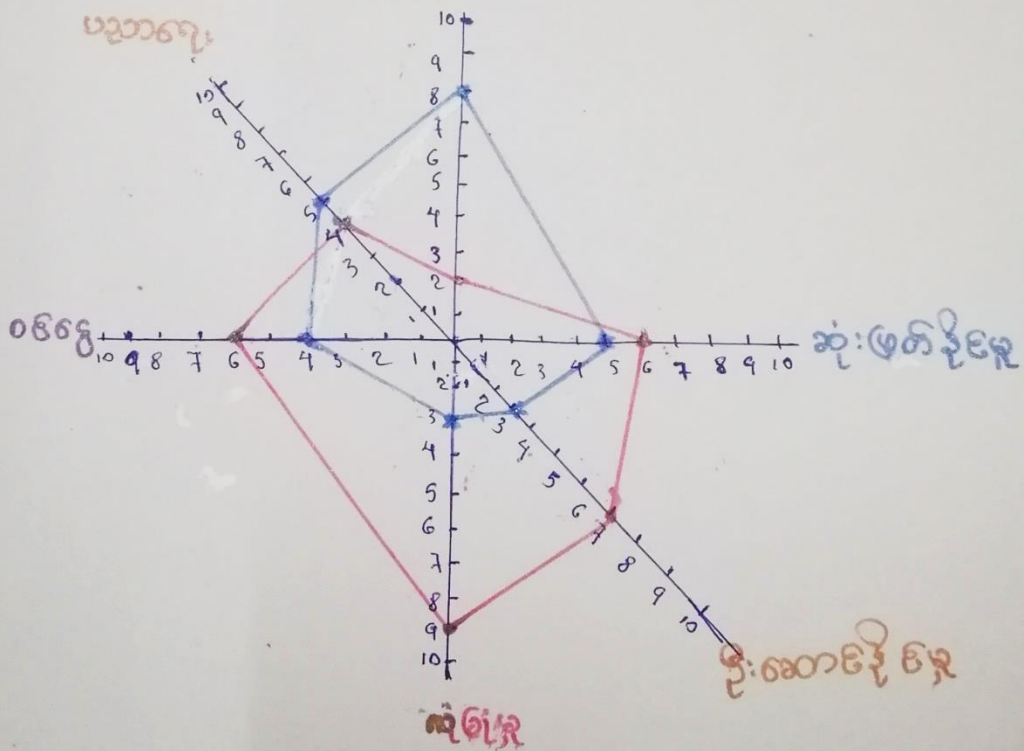 ပညာရေး
10
9
8
7
6
5
4
3
2
1
10 9 8 7 6 5 4 3 2 1
ဝင်ငွေ 10 9 8 7 6 5 4 3 2 1 1 2 3 4 5 6 7 8 9 10 ဆုံးဖြတ်နိုင်မှု
1
2
3
4
5
6
7
8
9
10
1 2 3 4 5 6 7 8 9 10
ဦးဆောင်နိုင်မှု
လုံခြုံမှု